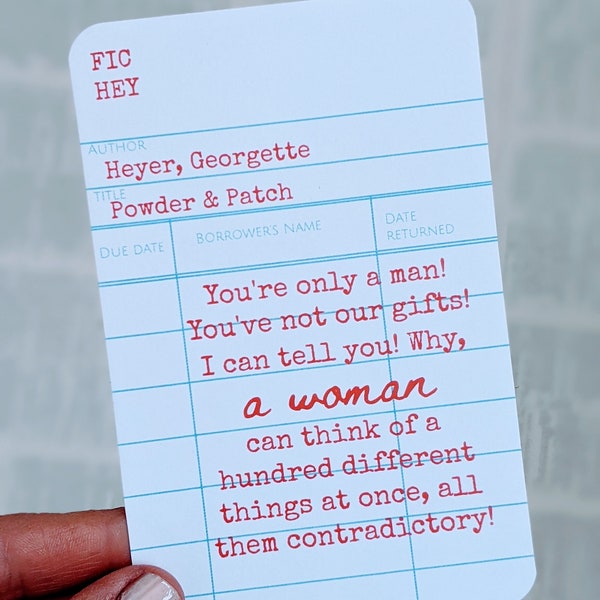 FIC
HEY
AUTHOR
Heyer, Georgette
TITLE
Powder & Patch
DUE DATE
BORROWERS NAME
DATE
RETURNED
You're only a man!
You've not our gifts!
I can tell you! Why,
a woman
can think of a
hundred different
things at once, all
them contradictory!